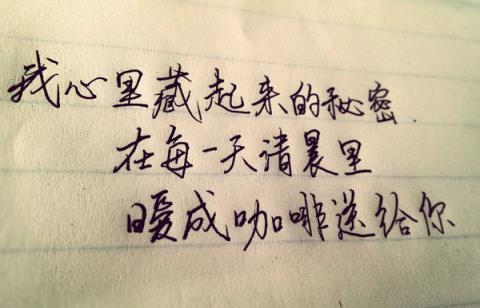 我心里藏起来的秘密.
在每一天清晨里
暖成咖啡送给你